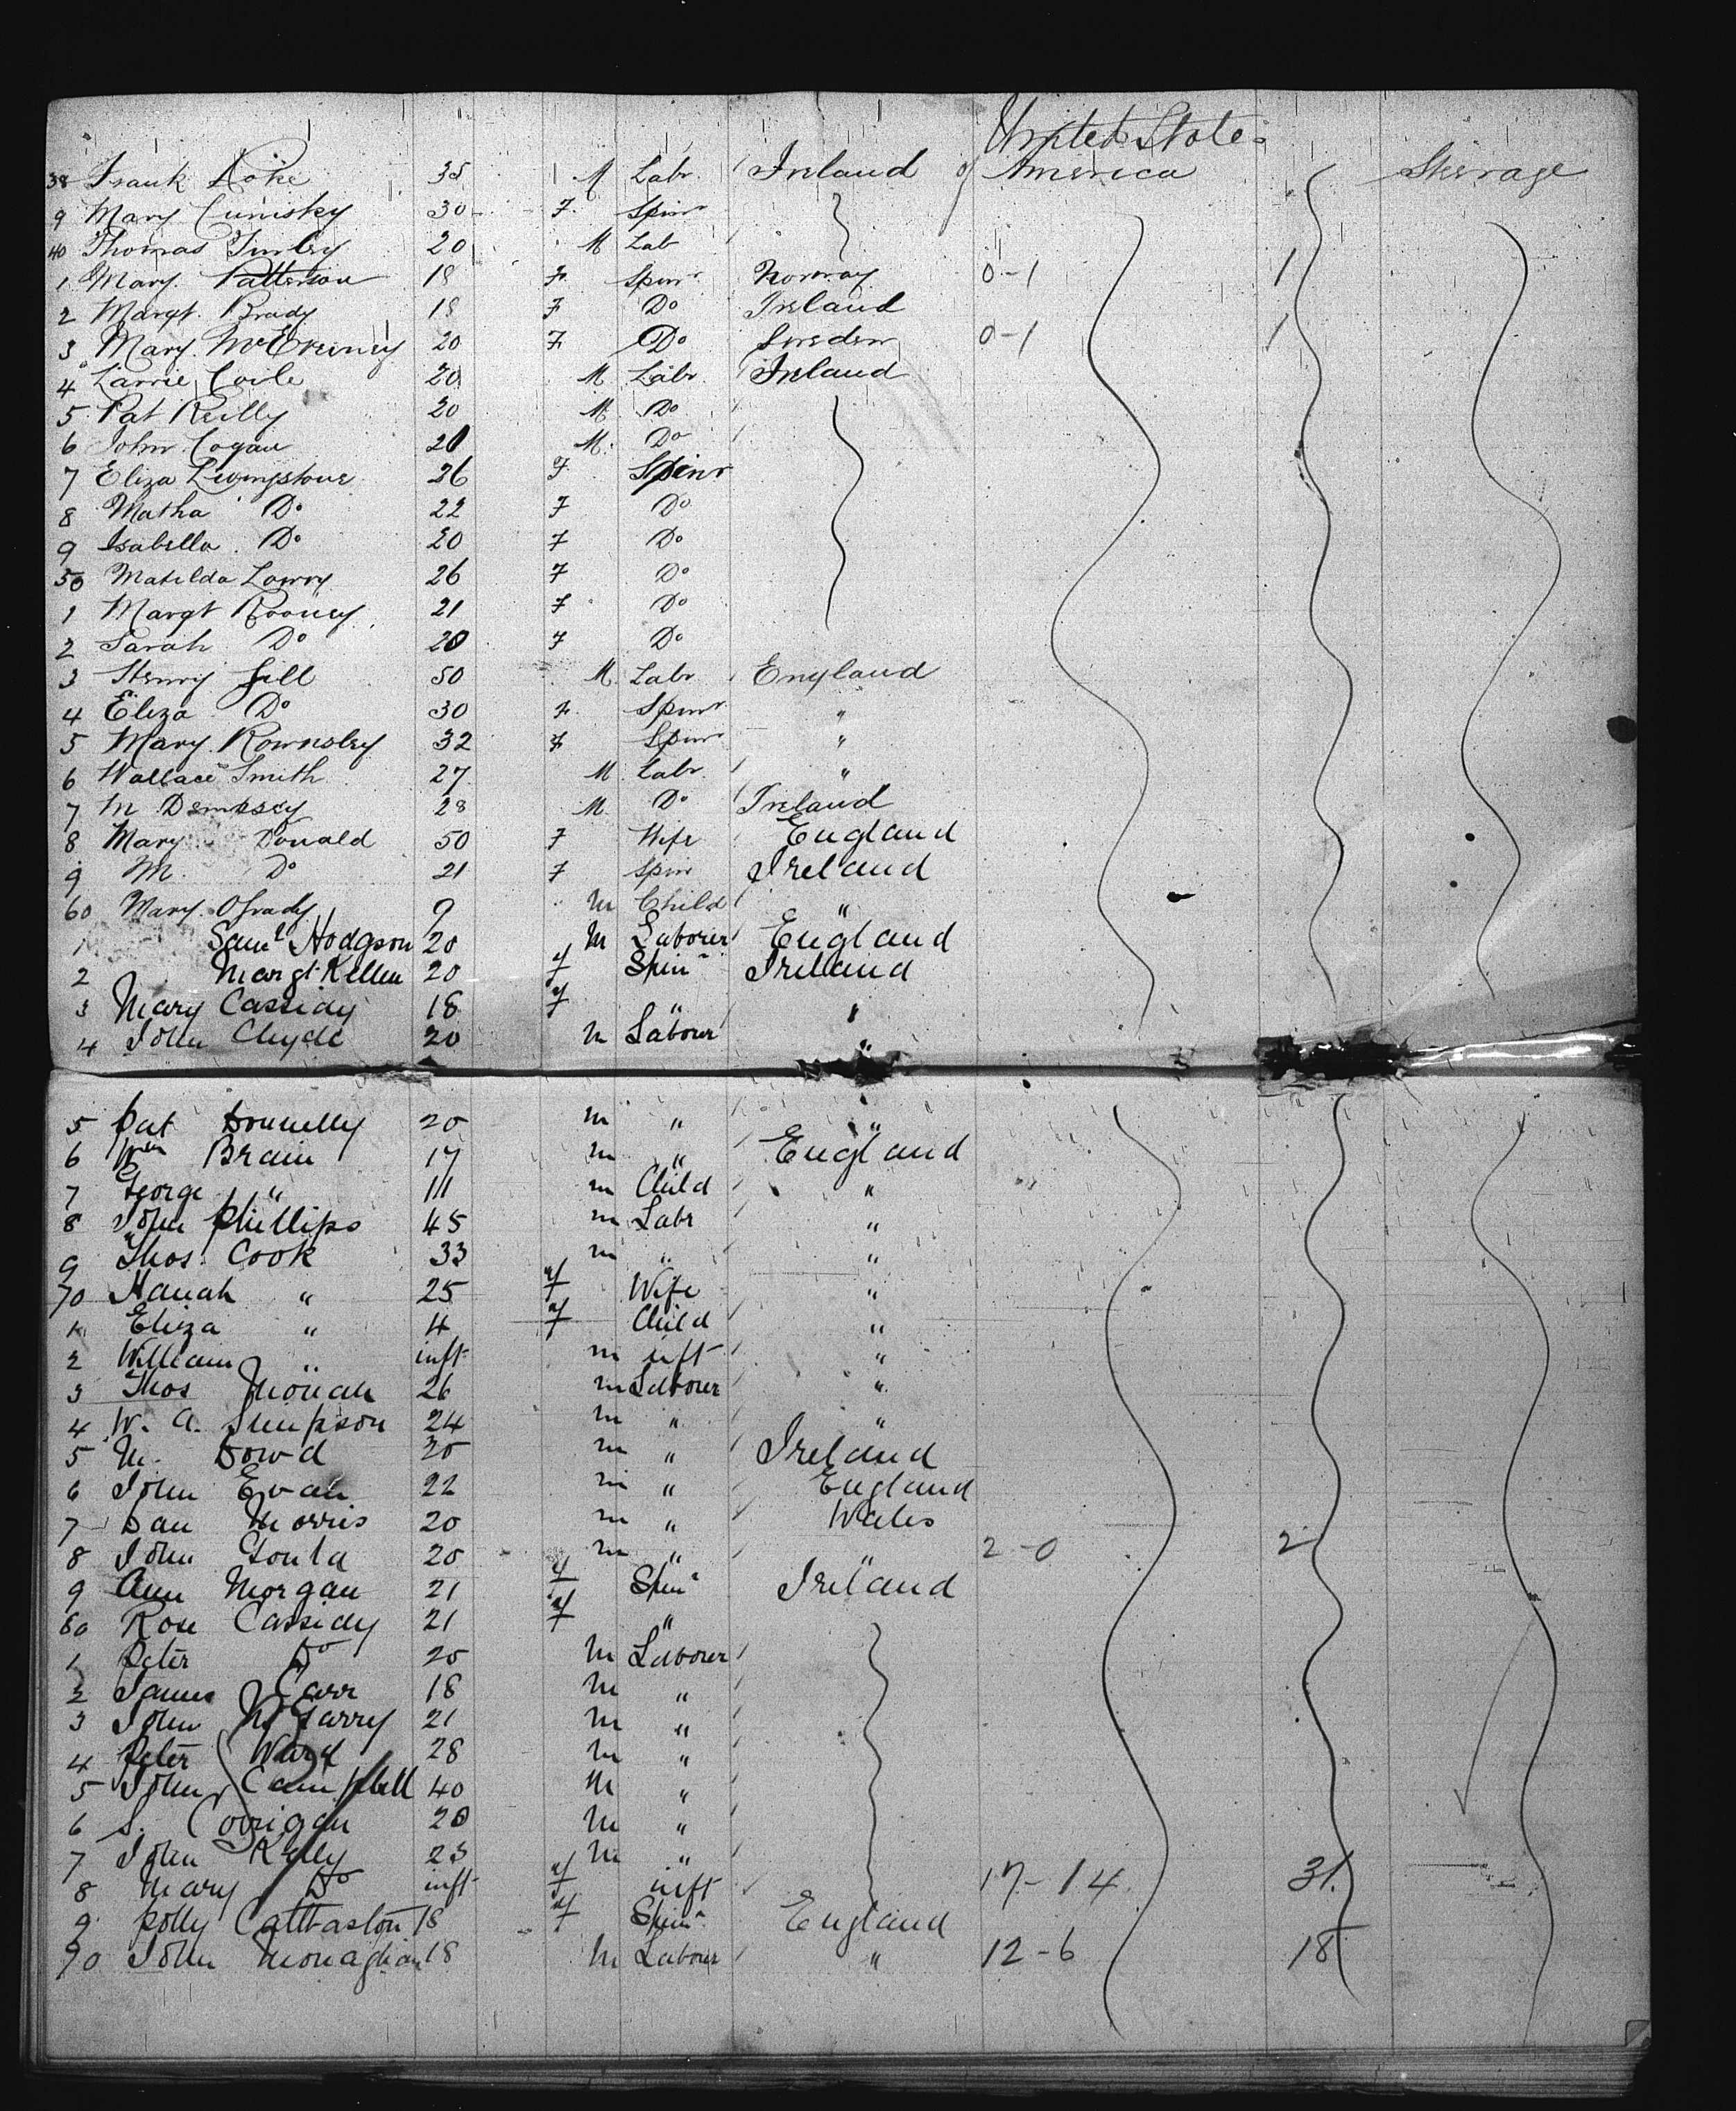 United States
38 Frank 35 M Labr Ireland of America Steerage
9 Mary Cumisky 30 F Spinr
40 Thomas 20 M Lab
1 Mary Patterson 18 F Spinr Norway 0-1 1
2 Margt. Brady 18 F Do Ireland
3 Mary 20 F Do Sweden 0-1 1
4 Coile 20 M Labr. Ireland
5 Pat Reilly 20 M Do
6 John Cogan 20 M. Do
7 Eliza Livingstone 26 F Spinr
8 Matha Do 22 F Do
9 Isabella Do 20 F Do
50 Matilda Lowry 26 F Do
1 Margt Rooney 21 F Do
2 Sarah Do 20 F Do
3 Henry Gill 50 M. Labr England
4 Eliza Do 30 F. Spinr "
5 Mary Rownsley 32 F Spinr "
6 Wallace Smith 27 M Labr. "
7 M Dempsey 28 M. Do Ireland
8 Mary Donald 50 F Wife England
9 M. Do 21 F Spin Ireland
60 Mary OGrady 9 M Child "
1 Saml Hodgson 20 M Laborer England
2 Margt Kellen 20 f Spinr Ireland
3 Mary Cassidy 18 f " "
4 John Clyde 20 M Labour "
5 Pat Donnelly 20 M " "
6 Wm Brain 17 M " England
7 George " 11 M Child "
8 John Phillips 45 M Labr "
9 Thos. Cook 33 M " "
70 Hanah " 25 f Wife "
1 Eliza " 4 f Child "
2 William " inft M inft "
3 Thos Monah 26 M Laborer "
4 W. A. Simpson 24 M " "
5 M. Dowd 20 M " Ireland
6 John Evan 22 M " England
7 Dan Morris 20 M " Wales
8 John 20 M " " 2-0 2
9 Ann Morgan 21 f Spinr Ireland
80 Rose Cassidy 21 f "
1 Peter Do 20 M Laborer
2 James Carr 18 M "
3 John McGarry 21 M "
4 Peter Ward 28 M "
5 John Campbell 40 M "
6 S. Corrigan 20 M "
7 John Kelly 23 M "
8 Mary Do inft f inft 17-14 31
9 Polly 18 f Spinr England
90 John Monaghan 18 M Labour " 12-6 18